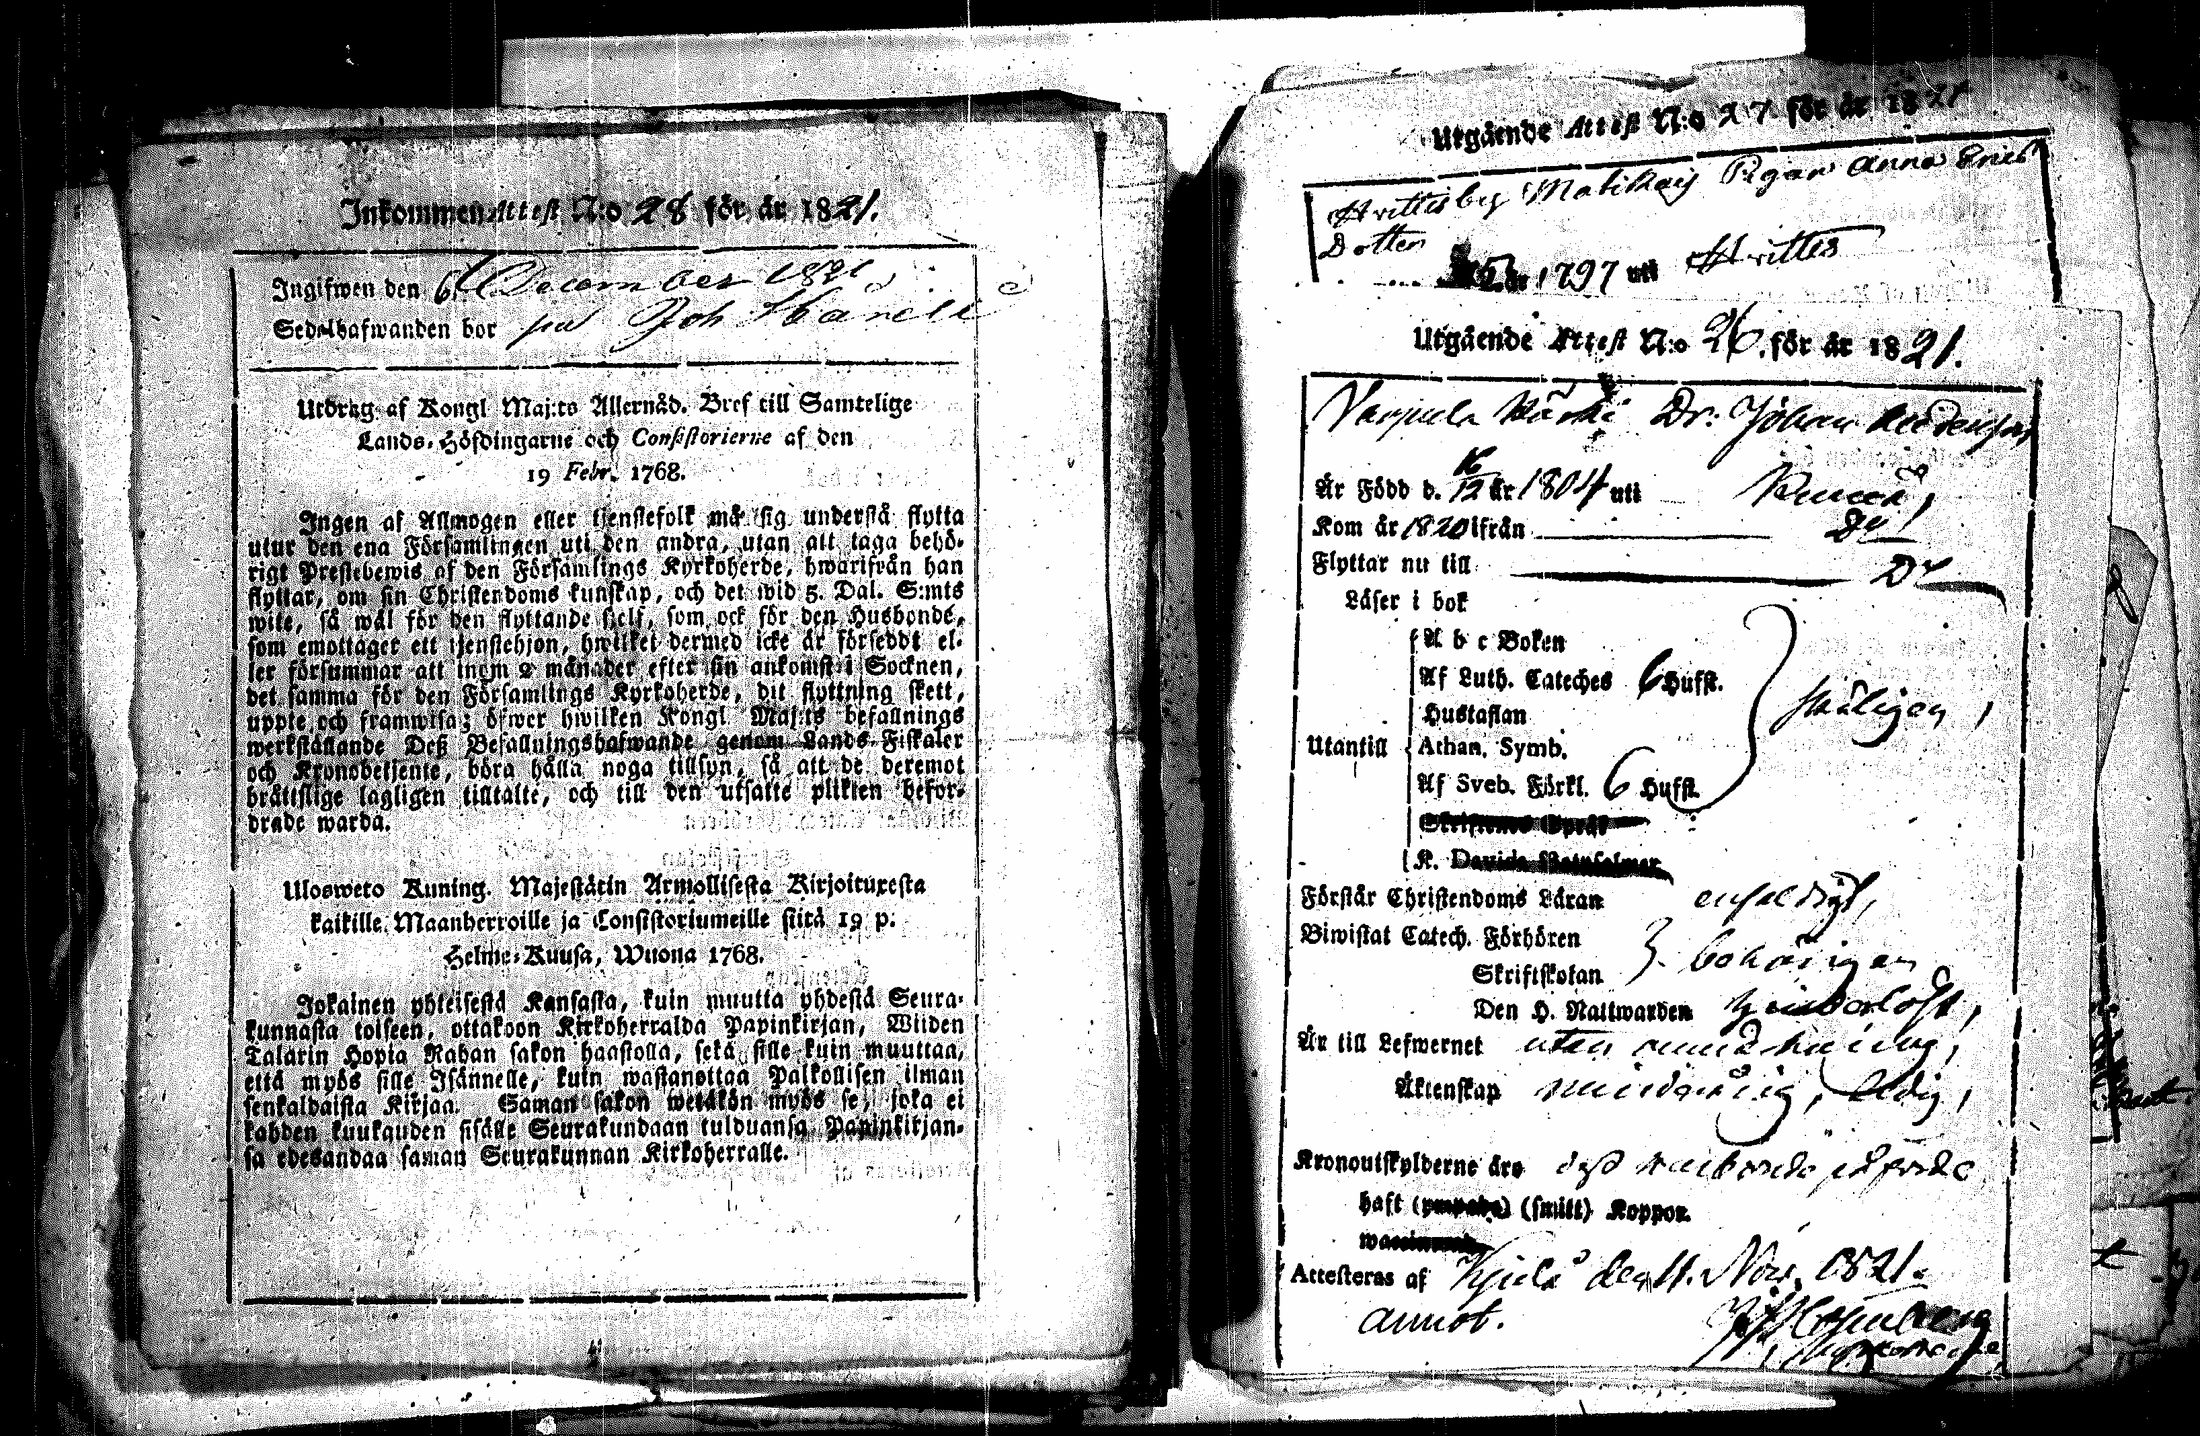 Inkommen Attest N:o 28 för år 1821.
Ingifwen den 6 December 1821
Sedelhafwanden bor på Joh
Utdrag af Kongl Maj:ts Allernåd. Bref till Samtelige
Lands-Höfdingarne och Consistorierne af den
19 Febr. 1768.
Ingen af Allmogen eller tjenstefolk må sig understå flytta
utur den ena Församlingen uti den andra, utan att taga behö-
rigt Prestebewis af den Församlings Kyrkoherde, hwarifrån han
flyttar, om sin Christendoms kunskap, och det wid 5. Dal. S:mts
wite, så wäl för den flyttande sjelf, som ock för den Husbonde,
som emottaget ett tjenstehjon, hwilket dermed icke är försedt el-
ler försummar att inom 2 månader efter sin ankomst i Socknen,
det samma för den Församlings Kyrkoherde, dit flyttning skett,
uppte och framwisa; öfwer hwilken Kongl. Maj:ts befallnings
werkställande Deß Befallningshafwande genom Lands-Fiskaler
och Kronobetjente, böra hålla noga tillsyn, så att de deremot
bråttslige lagligen tilltalte, och till den utsatte plikten befor-
drade warda.
Ulosweto Kuning. Majestätin Armollisesta Kirjoituxesta
kaikille Maanherroille ja Consistoriumeille siitä 19 p.
Helme-Kuusa, Wuona 1768.
Jokainen yhteisestä Kansasta, kuin muutta yhdestä Seura-
kunnasta toiseen, ottakoon Kirkoherralda Papinkirjan, Wiiden
Talarin Hopia Rahan sakon haastolla, sekä sille kuin muuttaa,
että myös sille Isännelle, kuin wastanottaa Palkollisen ilman
senkaldaista Kirjaa. Saman sakon wetäkön myös se, joka ei
kahden kuukauden sisälle Seurakundaan tulduansa Papinkirjan-
sa edesandaa saman Seurakunnan Kirkoherralle.
Utgående Attest N:o 27 för år 1821
Hvittisby Matikaij Pigan Anna Erics
Dotter
år 1797 uti Hvittis
Utgående Attest N:o 26. för år 1821.
Dr: Johan
Är Född d. 16/12 år 1804 uti
Kom år 1820 ifrån Do
Flyttar nu till Do
Läser i bok
A b c Boken
Af Luth. Cateches 6 Hufst.
Hustaflan
Utantill Athan. Symb. skäligen,
Af Sveb. Förkl. 6 Hufst.
K. Davids
Förstår Christendoms Läran enfaldigt,
Biwistat Catech. Förhören
Skriftskolan behörigen
Den H. Nattwarden
Är till Lefwernet utan anmärkning,
Äktenskap minderårig, ledig,
Kronoutskylderne äro påförde
haft (smitt) Koppor.
Attesteras af Kjulå den 11. Nov. 1821.
annot.